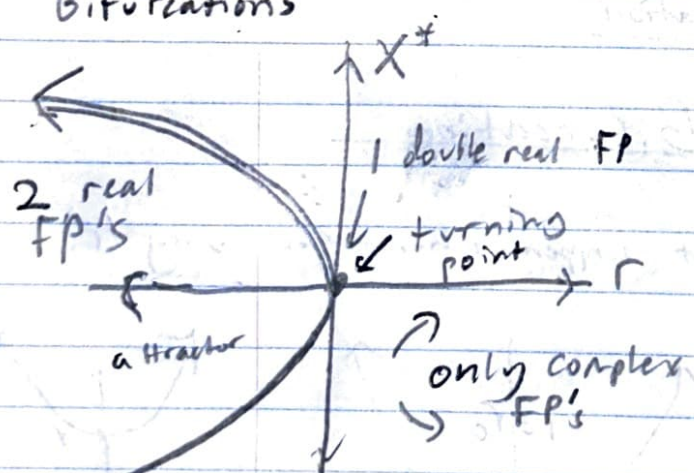 Bifurcations
X*
1 double real FP
2 real
FP's
turning
point
r
attractor
only complex
FP's